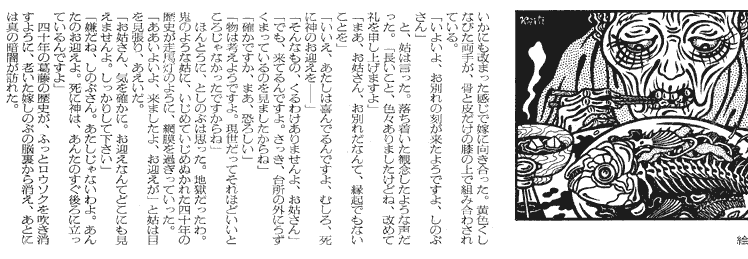 いかにも改まった感じで嫁に向き合った。黄色くし
なびた両手が、骨と皮だけの膝の上で組み合わされ
ている。
「いよいよ、お別れの刻が来たようですよ、しのぶ
さん」
と、姑は言った。落ち着いた観念したような声だ
った。「長いこと、色々ありましたけどね、改めて
礼を申し上げますよ」
「まあ、お姑さん、お別れだなんて、縁起でもない
ことを」
「いいえ、あたしは喜んでるんですよ、むしろ、死
に神のお迎えを――」
「そんなもの、くるわけありませんよ、お姑さん」
「でも、来てるんですよ。さっき、台所の外にうず
くまっているのを見ましたからね」
「確かですか、まあ、恐ろしい」
「物は考えようですよ。現世だってそれほどいいと
ころじゃなかったですからね」
ほんとうに、としのぶは思った。地獄だったわ。
鬼のような姑に、いじめていじめぬかれた四十年の
歴史が走馬灯のように、網膜を過ぎっていった。
「ああいよいよ、来ましたよ、お迎えが」と姑は目
を見張り、あえいだ。
「お姑さん、気を強かに。お迎えなんてどこにも見
えませんよ。しっかりして下さい」
「嫌だね、しのぶさん。あたしじゃないわよ。あん
たのお迎えよ。死に神は、あんたのすぐ後ろに立っ
ているんですよ」
四十年の葛藤の歴史が、ふっとロウソクを吹き消
すように、老いた嫁しのぶの脳裏から消え、あとに
は真の暗闇が訪れた。
絵